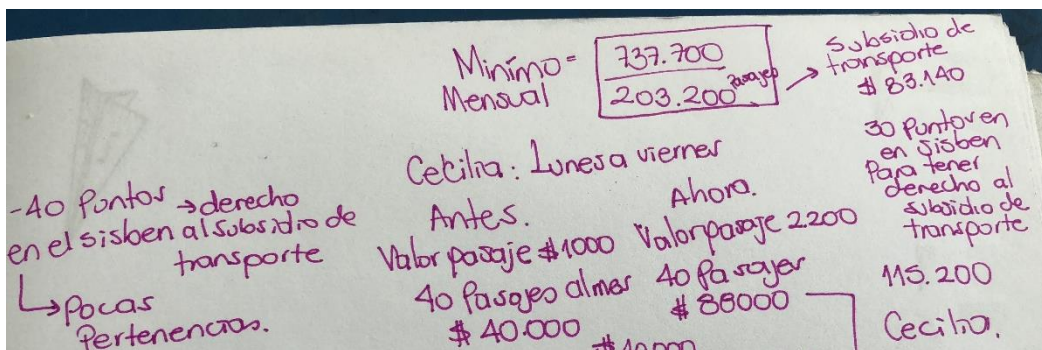 Minímo = 737.700
Mensual 203.200 Pasajes
Subsidio de
transporte
$ 83.140
30 Puntos en
en Sisben
Para tener
derecho al
subsidio de
transporte
115.200
Cecilia.
Cecilia: Lunes a viernes
-40 Puntos → derecho
en el sisben al subsidio de
transporte
↳ Pocas
Pertenencias.
Antes.
Valor pasaje $1000
40 Pasajes al mes
$ 40.000
Ahora.
Valor pasaje 2.200
40 Pasajes
$ 88000